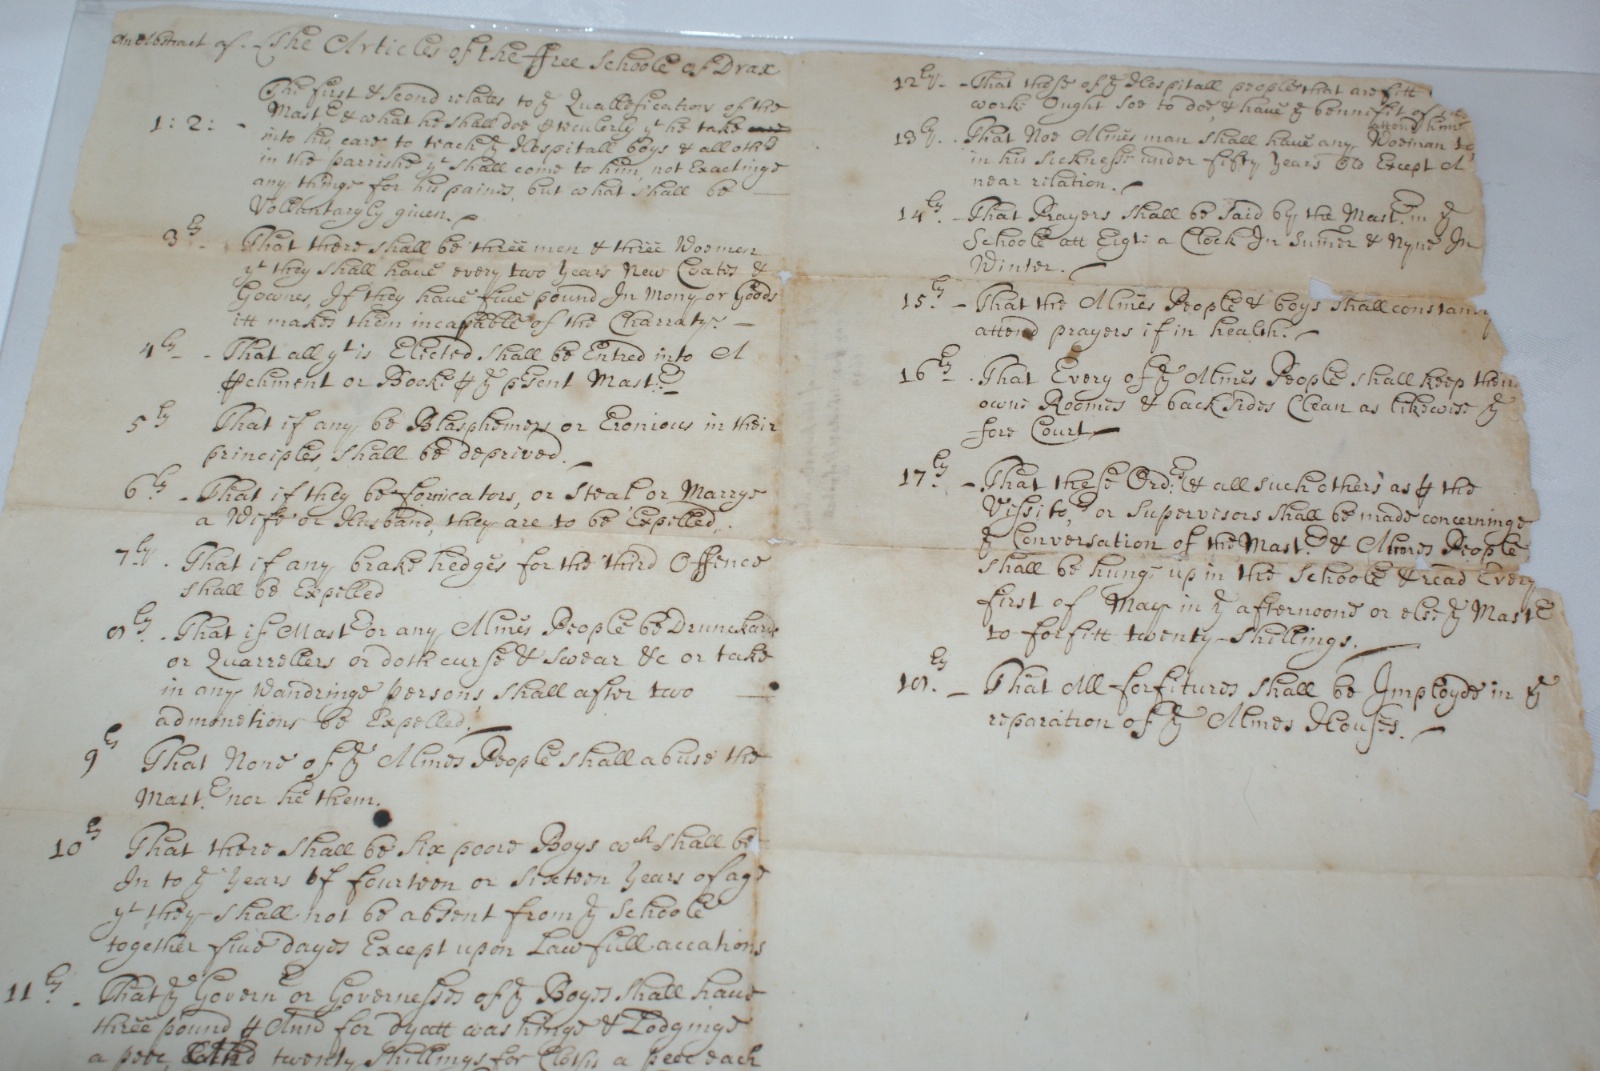 An Abstract of. The Articles of the ffree Schoole of Drax
The first & second relates to ye Quallefication of the
1: 2: - Mastr & what he shall doe pticulerly yt he take
into his care to teach ye Hospitall boys & all othrs
in the parrishe yt shall come to him, not Exactinge
any thinge for his paines, but what shall be
Vollantaryly given.
3ly - That there shall be three men & three Woemen
yt they shall have every two years New Coates &
Gownes, If they have five pound In Mony or Goods
itt makes them incapable of the Charraty. -
4ly - That all yt is Elected shall be Entred into A
pchment or Booke p ye psent Mastr.
5ly That if any be Blasphemers or Eronious in their
principles, shall be deprived.
6ly - That if they be fornicators, or Steal or Marrye
a Wife or Husband, they are to be Expelled.
7ly. That if any brake hedges for the third Offence
shall be Expelled
8ly. That if Mastr or any Almes People be Drunckards
or Quarrellers or doth curse & Swear &c or take
in any Wandringe persons, shall after two
admonetions be Expelled.
9ly That None of ye Almes People shall abuse the
Mastr. nor he them.
10ly That there shall be Six poore Boys wch shall be
In to ye years of fourteen or Sixteen years of age
yt they shall not be absent from ye Schoole
together five dayes Except upon Lawfull accations
11ly - That ye Governr or Governesses of ye Boyes shall have
three pound p Annd for dyatt washinge & Lodginge
a peec, twenty Shillings for Cloths a peec each
12ly. - That these of ye Hospitall people that are fitt
work Ought soe to doe, & have ye bennifit of
attend him
13ly. That Noe Almes man shall have any Woeman to
in his Sicknesse under fifty years Old Except A
near relation.
14ly. - That Prayers shall be Said by the Mastr. in ye
Schoole att Eigt: a Clock In Sumer & Nyne In
Winter.
15ly - That the Almes People & boys shall constantly
attend prayers if in health.
16ly - That Every of ye Almes People shall keep their
owne Roomes & back sides Clean as likewise ye
fore Court
17ly - That these Ordrs & all such others as p the
Vissitors or Supervisors shall be made concerninge
ye Conversation of the Mastr. & Almes People
shall be hung up in the Schoole & read Every
first of May in ye afternoone or else ye Mastr
to forfitt twenty Shillings.
18ly. - That All forfitures shall be Imployde in ye
reparation of ye Almes Houses.